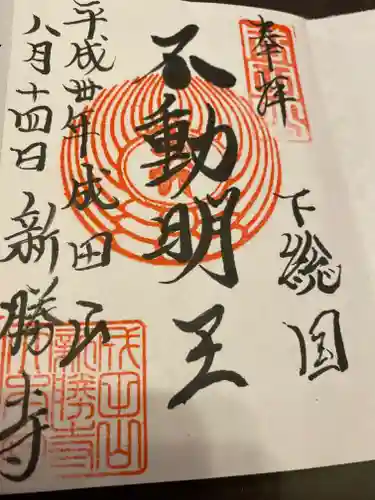 奉拝
下総国
不動明王
平成卅年成田山
八月十四日新勝寺
成田山
新勝寺